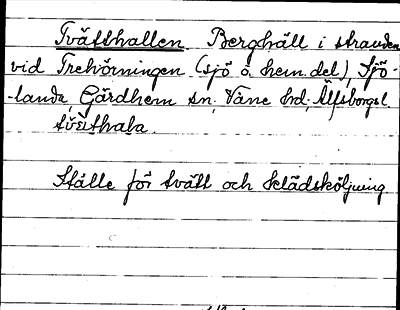 Tvätthallen Berghäll i stranden
vid Trehörningen (sjö o. hem. del) Sjö-
-landa, Gärdhem sn. Väne hd. Älfsborgsl.
Ställe för tvätt och klädsköljning